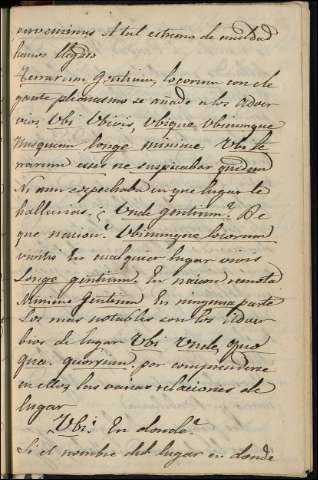 envenimus A tal estremo de maldad
hemos llegado
Terrarum Gentium, locorum con ele
gante pleonasmo se añade a los Adver
vios Ubi Ubivis, Ubique, Ubicumque
Nusquam longe minime. Ubi te
rrarum esses ne suspicabar quidem
Ni aun sospechaba en que lugar te
hallarias. ¿ Unde gentium? De
que nacion? Ubicumque locorum
vivitis En cualquier lugar vivis
Longe gentium. En nacion remota
Minime Gentium En ninguna parte
Los mas notables son los Adver
bios de lugar Ubi Unde, quo
qua. quorsum. por comprenderse
en ellos las varias relaciones de
lugar
Ubi? En donde?
Si el nombre del lugar en donde